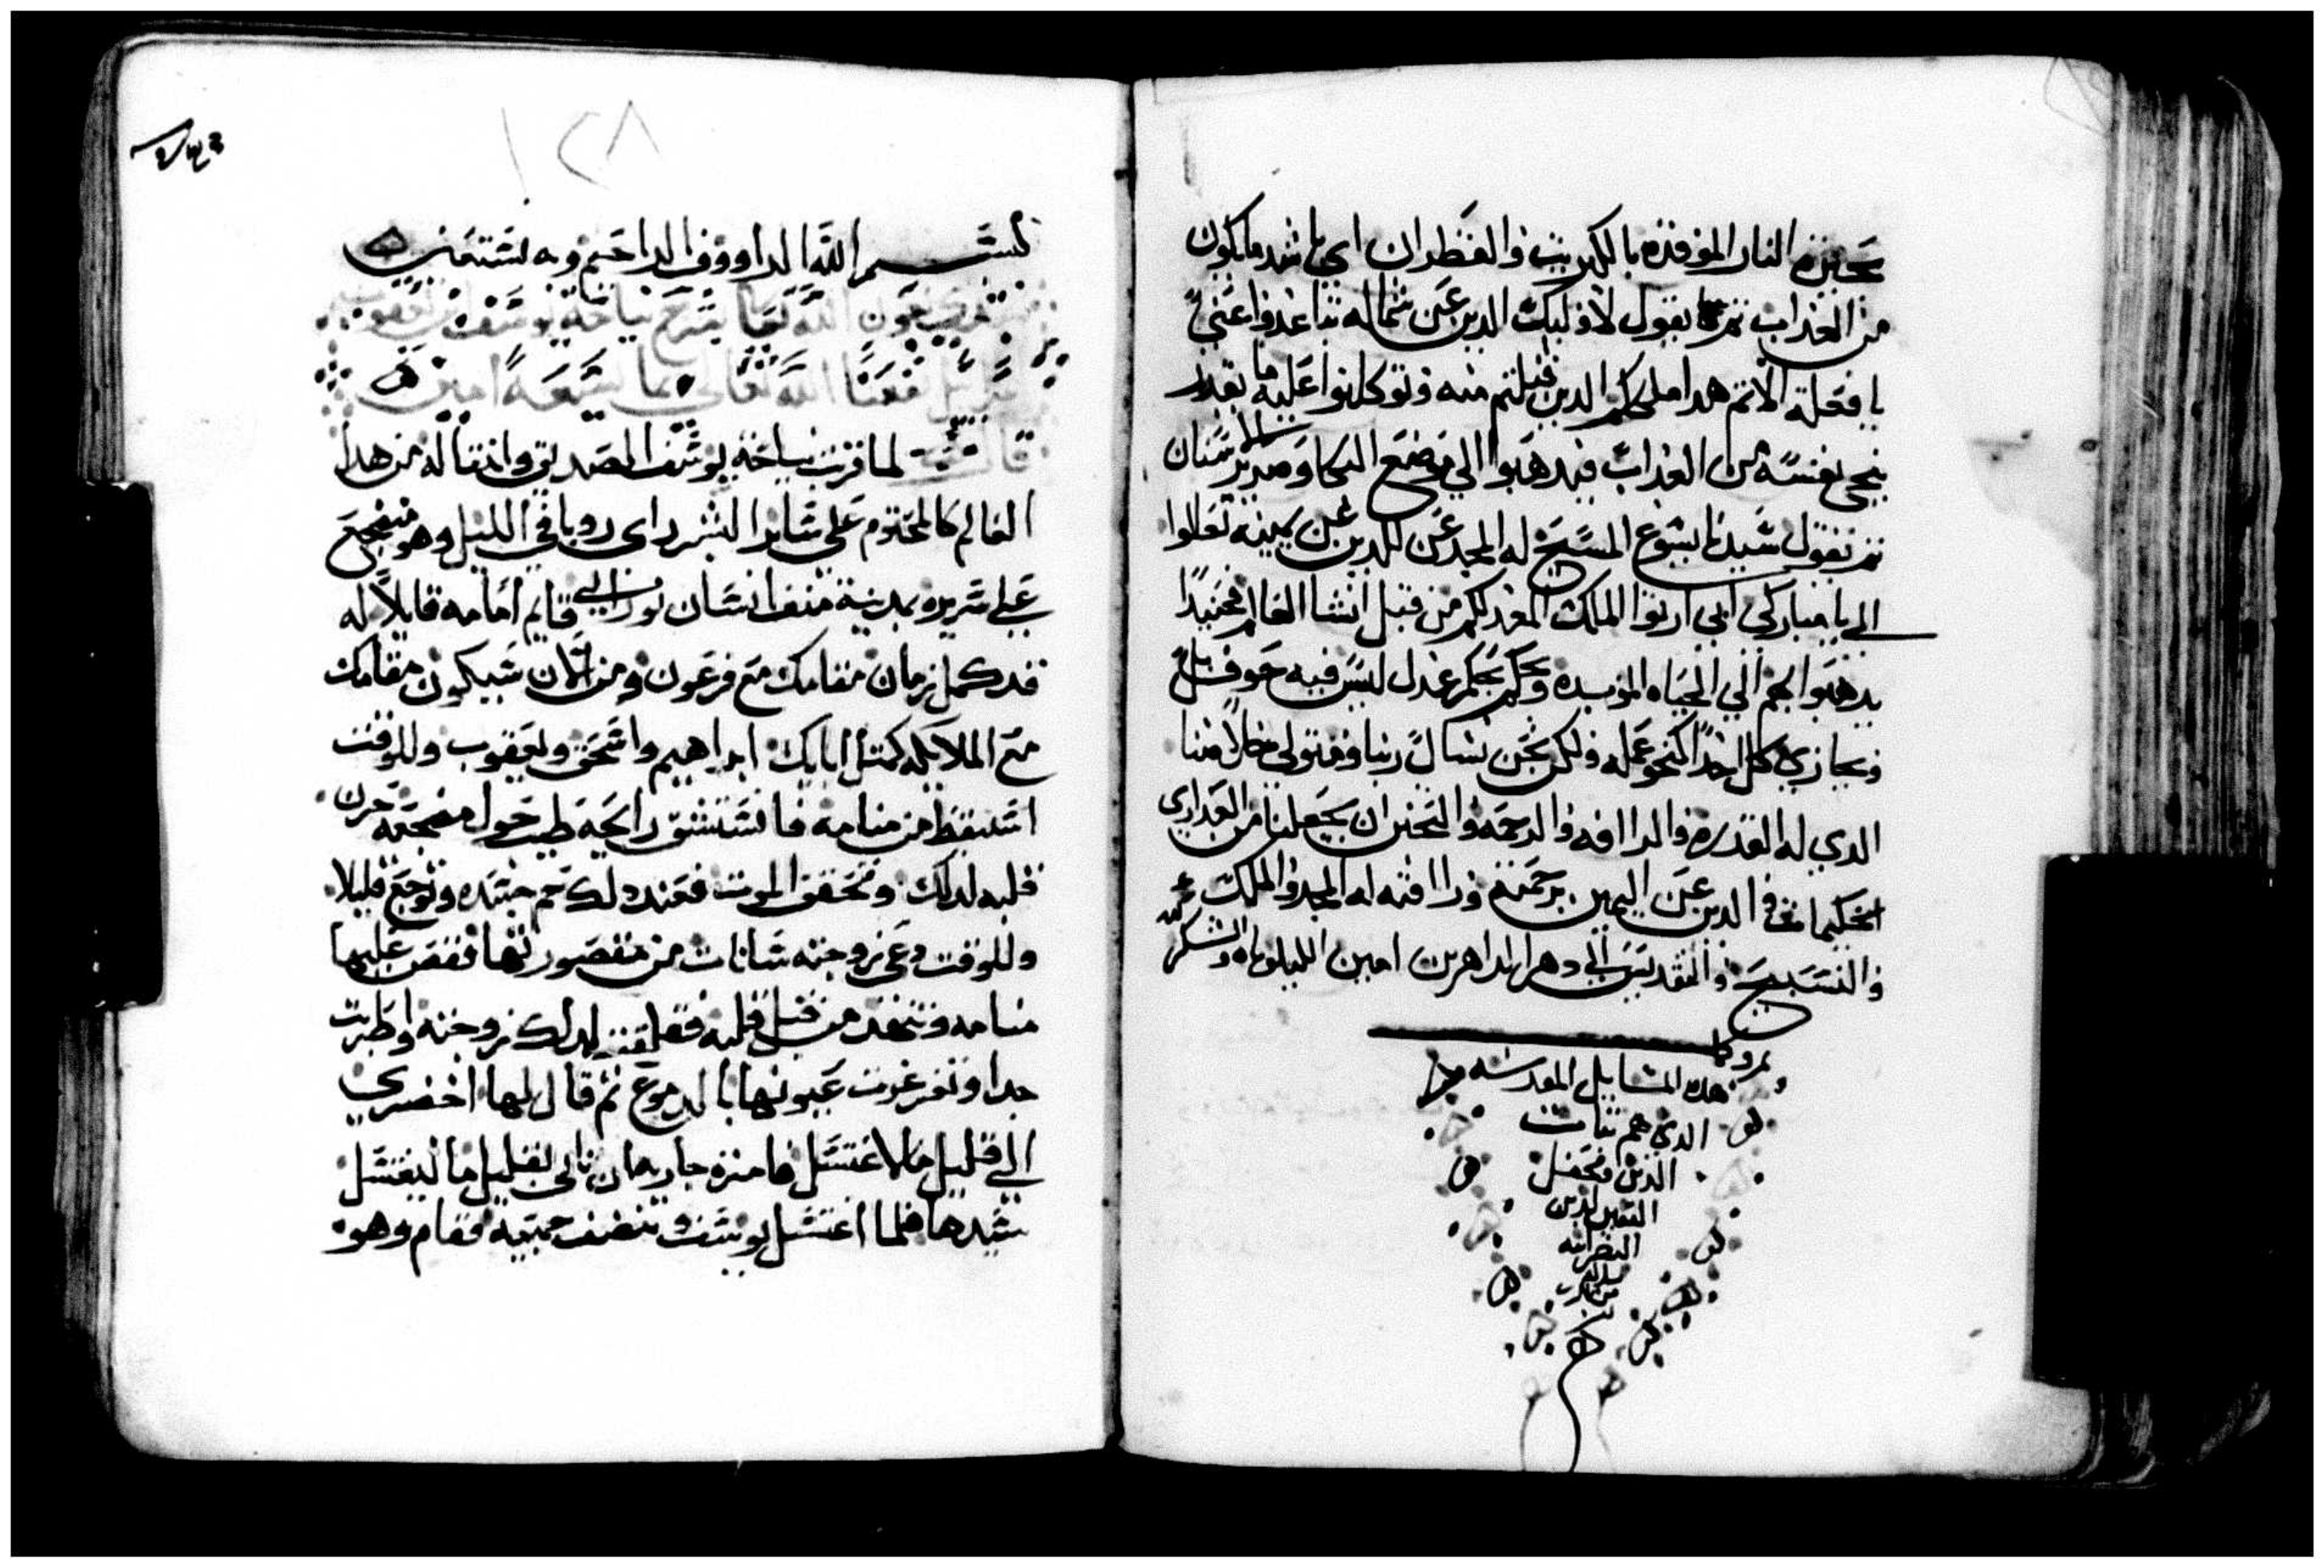 بحيرة النار الموقده بالكبريت والقطران اي باشد ما يكون
من العذاب ثم يقول لاوليك الدين عن شماله تباعدوا عني
يا فعلة الاتم هدا ملككم الدين قبلتم منه وتوكلتوا عليه ما يقدر
ينجي نفسه من العذاب فيدهبوا الي موضع البكا وصرير الاسنان
ثم يقول سيدنا يشوع المسيح له المجد للدين عن يمينه تعالوا
الي يا مباركي ابي ارتوا الملك المعد لكم من قبل انشا العالم فحنيدا
يدهبوا بهم الي الحياه الموبده ويحكم بحكم عدل ليس فيه خوف بل
ويجازي كل احدا كنحو عمله ولكن نحن نسال ربنا ومتولي خلاصنا
الدي له القدره والراافه والرحمه والتحنن ان يجعلنا من العداري
الحكيمات والدين عن اليمين برحمته وراافته له المجد والملك
والتسبيح والتقديس الي دهر الداهرين امين الليلوياه والشكر لله
هده المسايل المقدسه
الدي هم تبات
الدين
١٢٨
بسم الله الراووف الراحيم وبه نستعين
نبتدي بعون الله تعالي بشرح نياحة يوسف بن يعقوب
اسراييل نفعنا الله تعالي بما نسمعه امين
قال لما قربت نياحة يوسف الصديق وانتقاله من هدا
العالم كالمحتوم علي ساير البشر راى رويا في الليل وهو منضجع
علي سريره بمدينة منف انسان نوراني قايم امامه قايلا له
قد كمل زمان مقامك مع فرعون ومن الان سيكون مقامك
مع الملايكه كمتل ابايك ابراهيم واسحق ويعقوب وللوقت
استيقظ من منامه فانستنشق رايحة طيب حول مضجعه حزن
قلبه لدلك وتحقق الموت فعند دلك حم جسده وتوجع قليلا
وللوقت دعي زوجته سانات من مقصورتها فقص عليها
منامه وتنهد من قبل قلبه فقلقت لدلك زوجته واضطربت
جدا وتغرغرت عيونها بالدموع تم قال لها احضري
الي قليل ما لاغتسل فامرة جاريه ان تاتي بقليل ما ليغتسل
سيدها فلما اغتسل يوسف وتنضف جميعه فقام وهو